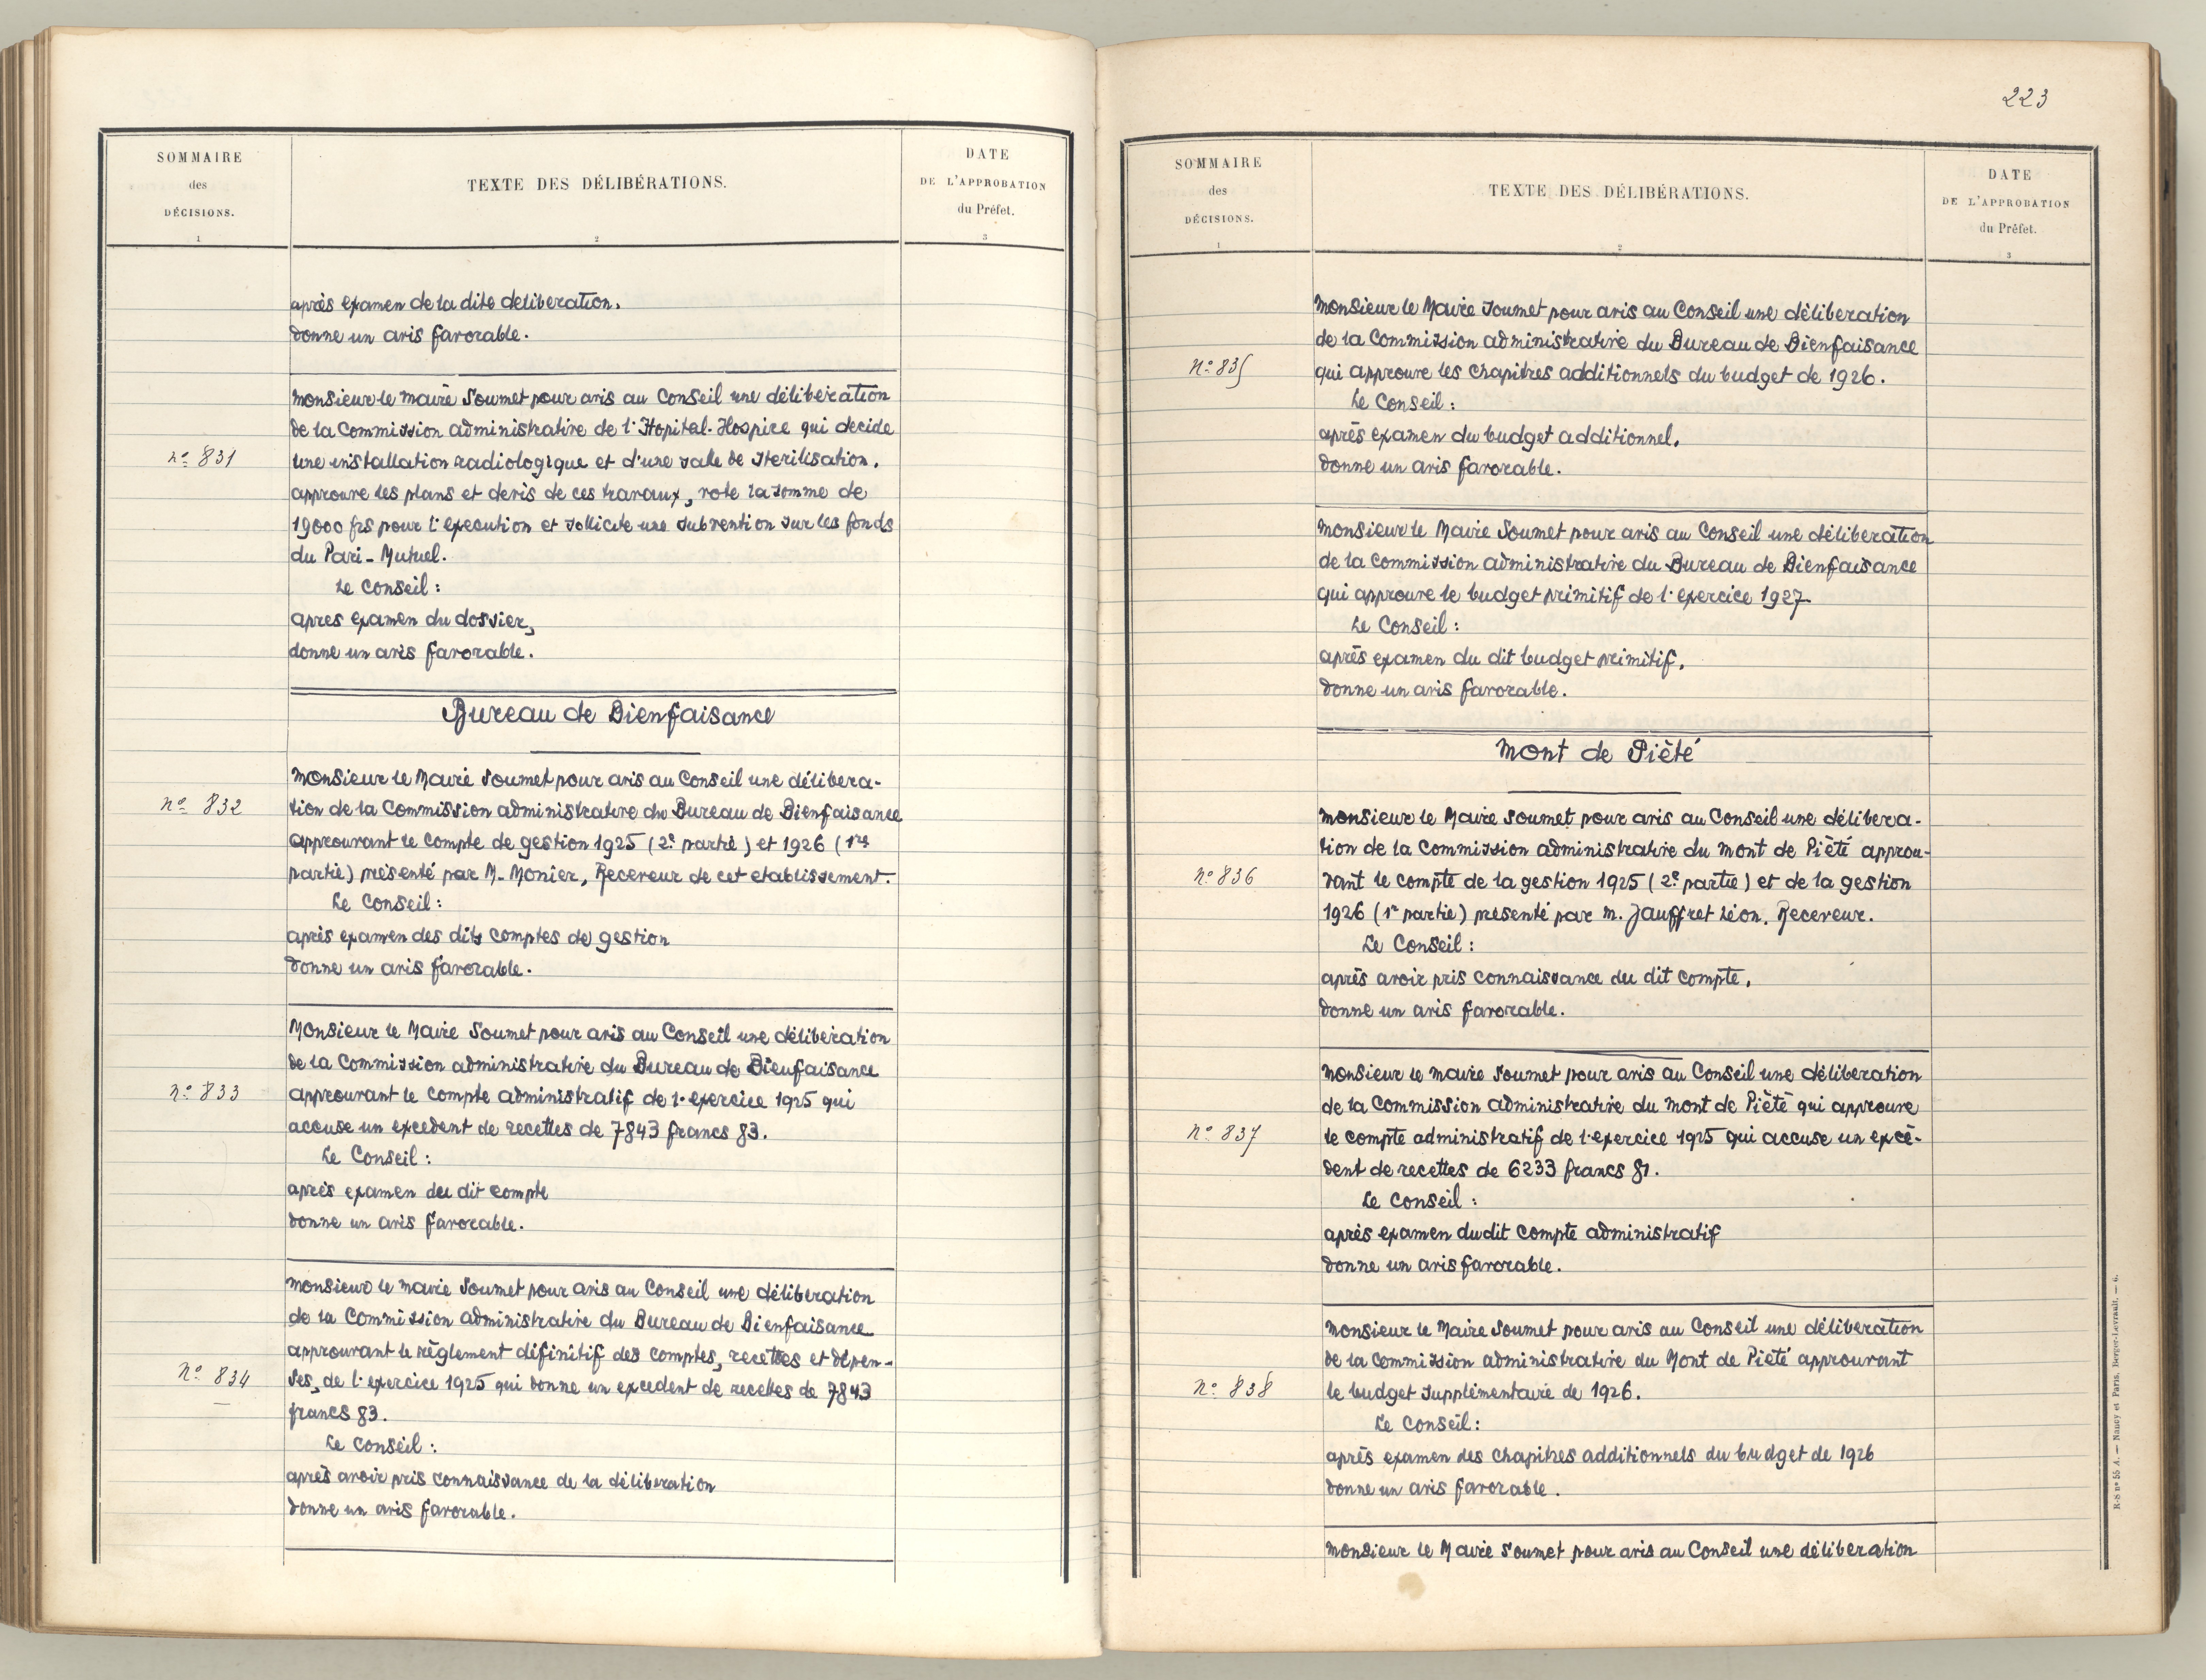 SOMMAIRE
des
DÉCISIONS.
1
TEXTE DES DÉLIBÉRATIONS.
2
DATE
DE L'APPROBATION
du Préfet.
3
après examen de la dite deliberation.
donne un avis favorable.
Monsieur le maire Soumet pour avis au Conseil une délibération
de la Commission administrative de l'Hopital-Hospice qui decide
n° 831
une installation radiologique et d'une salle de sterilisation.
approuve les plans et devis de ces travaux, vote la somme de
19000 frs pour l'execution et sollicite une subvention sur les fonds
du Pari-Mutuel.
Le Conseil :
apres examen du dossier,
donne un avis favorable.
Bureau de Bienfaisance
Monsieur le Maire Soumet pour avis au Conseil une délibera-
n° 832
tion de la Commission administrative du Bureau de Bienfaisance
approuvant le compte de gestion 1925 (2e partie) et 1926 (1re
partie) présenté par M. Monier, Receveur de cet etablissement.
Le Conseil :
après examen des dits comptes de gestion
donne un avis favorable.
Monsieur le Maire Soumet pour avis au Conseil une déliberation
de la Commission administrative du Bureau de Bienfaisance
n° 833
approuvant le compte administratif de l'exercice 1925 qui
accuse un excedent de recettes de 7843 francs 83.
Le Conseil :
après examen du dit compte
donne un avis favorable.
Monsieur le maire Soumet pour avis au Conseil une déliberation
de la Commission administrative du Bureau de Bienfaisance
approuvant le règlement définitif des comptes, recettes et dépen-
n° 834
ses, de l'exercice 1925 qui donne un excedent de recettes de 7843
francs 83.
Le Conseil :
après avoir pris connaissance de la déliberation
donne un avis favorable.
223
SOMMAIRE
des
DÉCISIONS.
1
TEXTE DES DÉLIBÉRATIONS.
2
DATE
DE L'APPROBATION
du Préfet.
3
Monsieur le Maire soumet pour avis au Conseil une déliberation
de la Commission administrative du Bureau de Bienfaisance
n° 835
qui approuve les chapitres additionnels du budget de 1926.
Le Conseil :
après examen du budget additionnel.
donne un avis favorable.
Monsieur le Maire Soumet pour avis au Conseil une déliberation
de la Commission administrative du Bureau de Bienfaisance
qui approuve le budget primitif de l'exercice 1927
Le Conseil :
après examen du dit budget primitif.
donne un avis favorable.
Mont de Piété
Monsieur le Maire soumet pour avis au Conseil une délibera-
tion de la Commission administrative du Mont de Piété approu-
n° 836
vant le compte de la gestion 1925 (2e partie) et de la gestion
1926 (1re partie) présenté par M. Jauffret Léon. Receveur.
Le Conseil :
après avoir pris connaissance du dit compte.
donne un avis favorable.
Monsieur le maire soumet pour avis au Conseil une déliberation
de la Commission administrative du Mont de Piété qui approuve
n° 837
le compte administratif de l'exercice 1925 qui accuse un excé-
dent de recettes de 6233 francs 81.
Le Conseil :
après examen du dit compte administratif
donne un avis favorable.
Monsieur le Maire soumet pour avis au Conseil une déliberation
de la Commission administrative du Mont de Piété approuvant
n° 838
le budget supplémentaire de 1926.
Le Conseil :
après examen des chapitres additionnels du budget de 1926
donne un avis favorable.
Monsieur le Maire Soumet pour avis au Conseil une déliberation
R-S n° 55 A. — Nancy et Paris, Berger-Levrault. — 6.